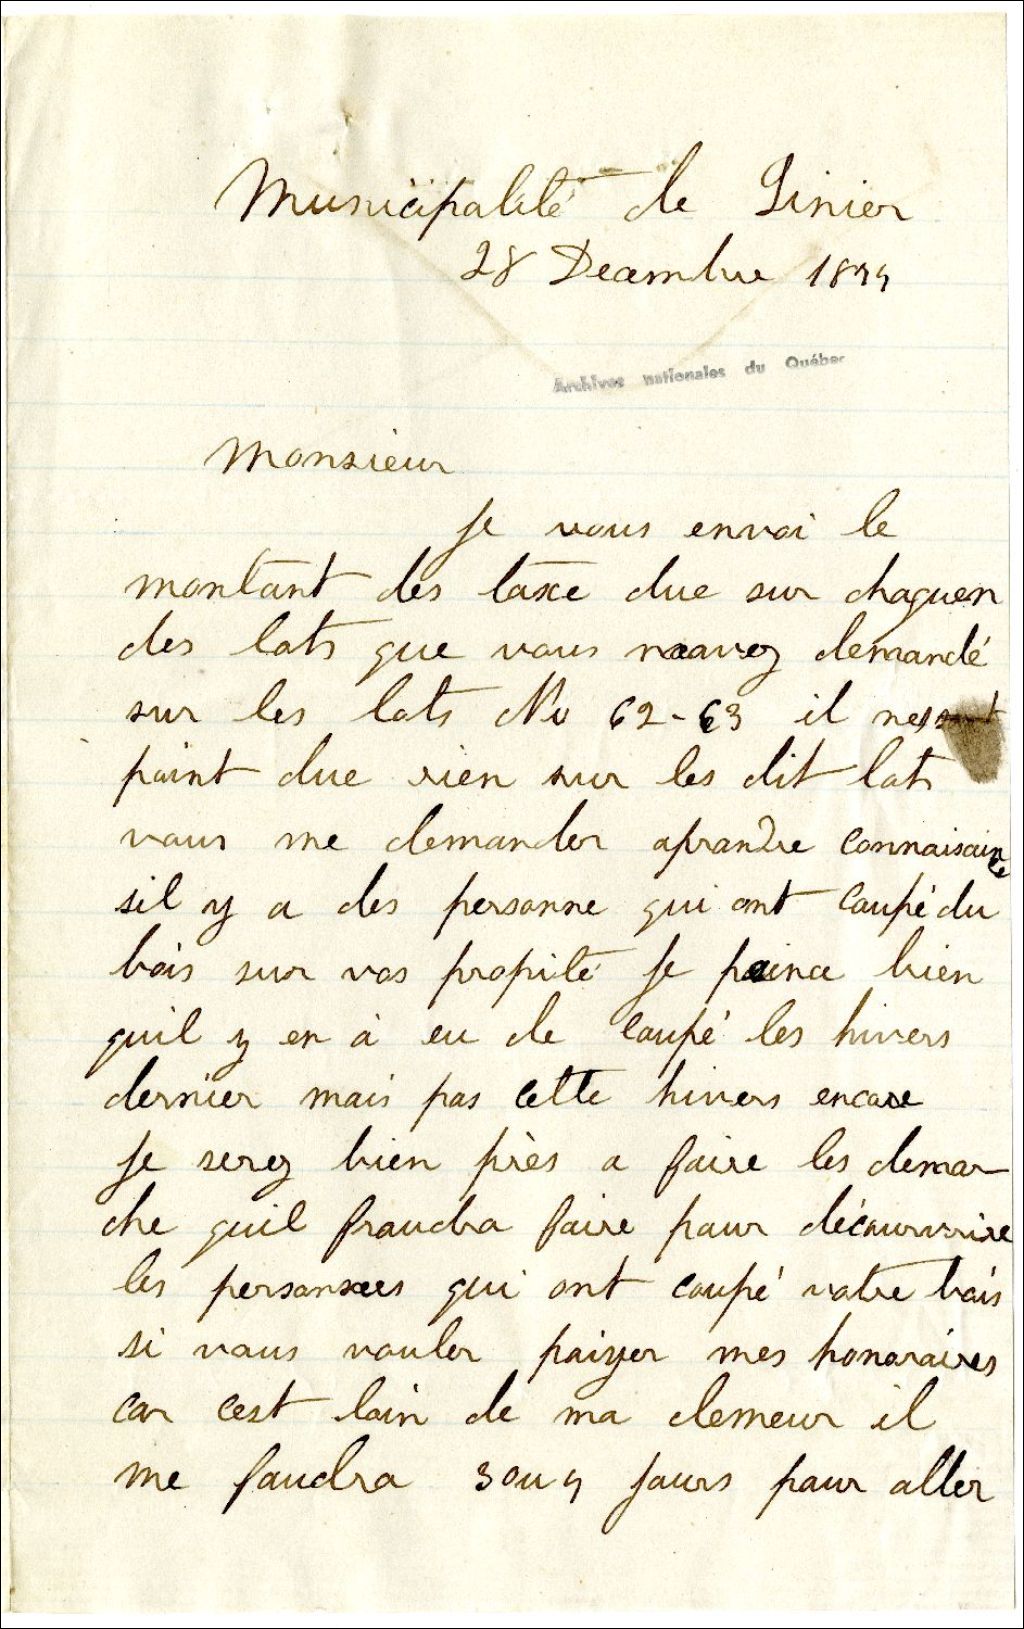 Municipalité de Linier
28 Decembre 1894
Archives nationales du Québec
Monsieur
Je vous envoi le
montant des taxe due sur chaquen
des lots que vous mavez demandé
sur les lots No 62-63 il nes
point due rien sur les dit lots
vous me demander aprandre connaisaince
sil y a des personne qui ont coupé du
bois sur vos propité Je peince bien
quil y en à eu de coupé les hivers
dernier mais pas cette hivers encore
Je serez bien près a faire les demar-
che quil fraudra faire pour découvrire
les personnees qui ont coupé votre bois
si vous vouler paiyer mes honoraires
car cest loin de ma demeur il
me faudra 3 ou 4 jours pour aller